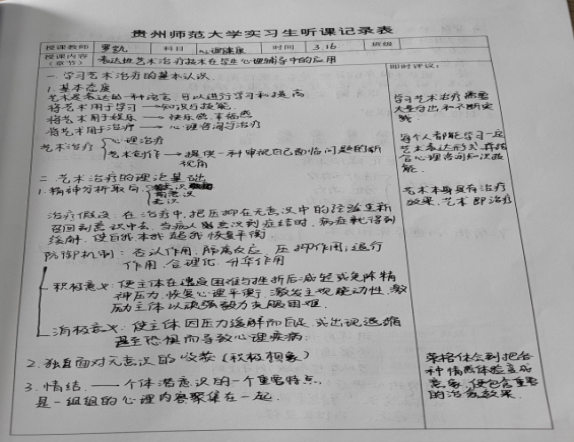 贵州师范大学实习生听课记录表
授课教师 罗凯 科目 心理健康 时间 3.16 班级
授课内容（章节） 表达性艺术治疗技术在学生心理辅导中的应用
即时评议：
一. 学习艺术治疗的基本认识
1. 基本态度
艺术是表达的一种语言，可以进行学习和提高
将艺术用于学习 → 知识与技能
将艺术用于娱乐 → 快乐感、幸福感
将艺术用于治疗 → 心理咨询与治疗
艺术治疗 心理治疗
艺术创作 → 提供一种审视自己面临问题的新视角
学习艺术治疗需要大量付出和不断实践
每个人都能学习一定艺术表达形式，并结合心理咨询知识技能.
二. 艺术治疗的理论基础
1. 精神分析取向 意识
前意识
无意识
艺术本身具有治疗效果，艺术即治疗
治疗假设：在治疗中，把压抑在无意识中的经验重新
召回到意识中去，当病人意识到症结时，病症就得到
缓解，使自我本我超我恢复平衡
防御机制：否认作用、反应、压抑作用、退行
作用、合理化、升华作用
积极意义：使主体在遭受困难与挫折后减轻或免除精
神压力，恢复心理平衡，激发主观能动性，激
励主体以顽强毅力克服困难.
消极意义：使主体因压力缓解而自足，或出现退缩
甚至恐惧而导致心理疾病.
2. 独自面对无意识的收获（积极想象）
3. 情结. —— 个体潜意识的一个重要特点.
是一组组的心理内容聚集在一起.
荣格体会到把各种情感体验变成意象，便包含重要的治疗效果.